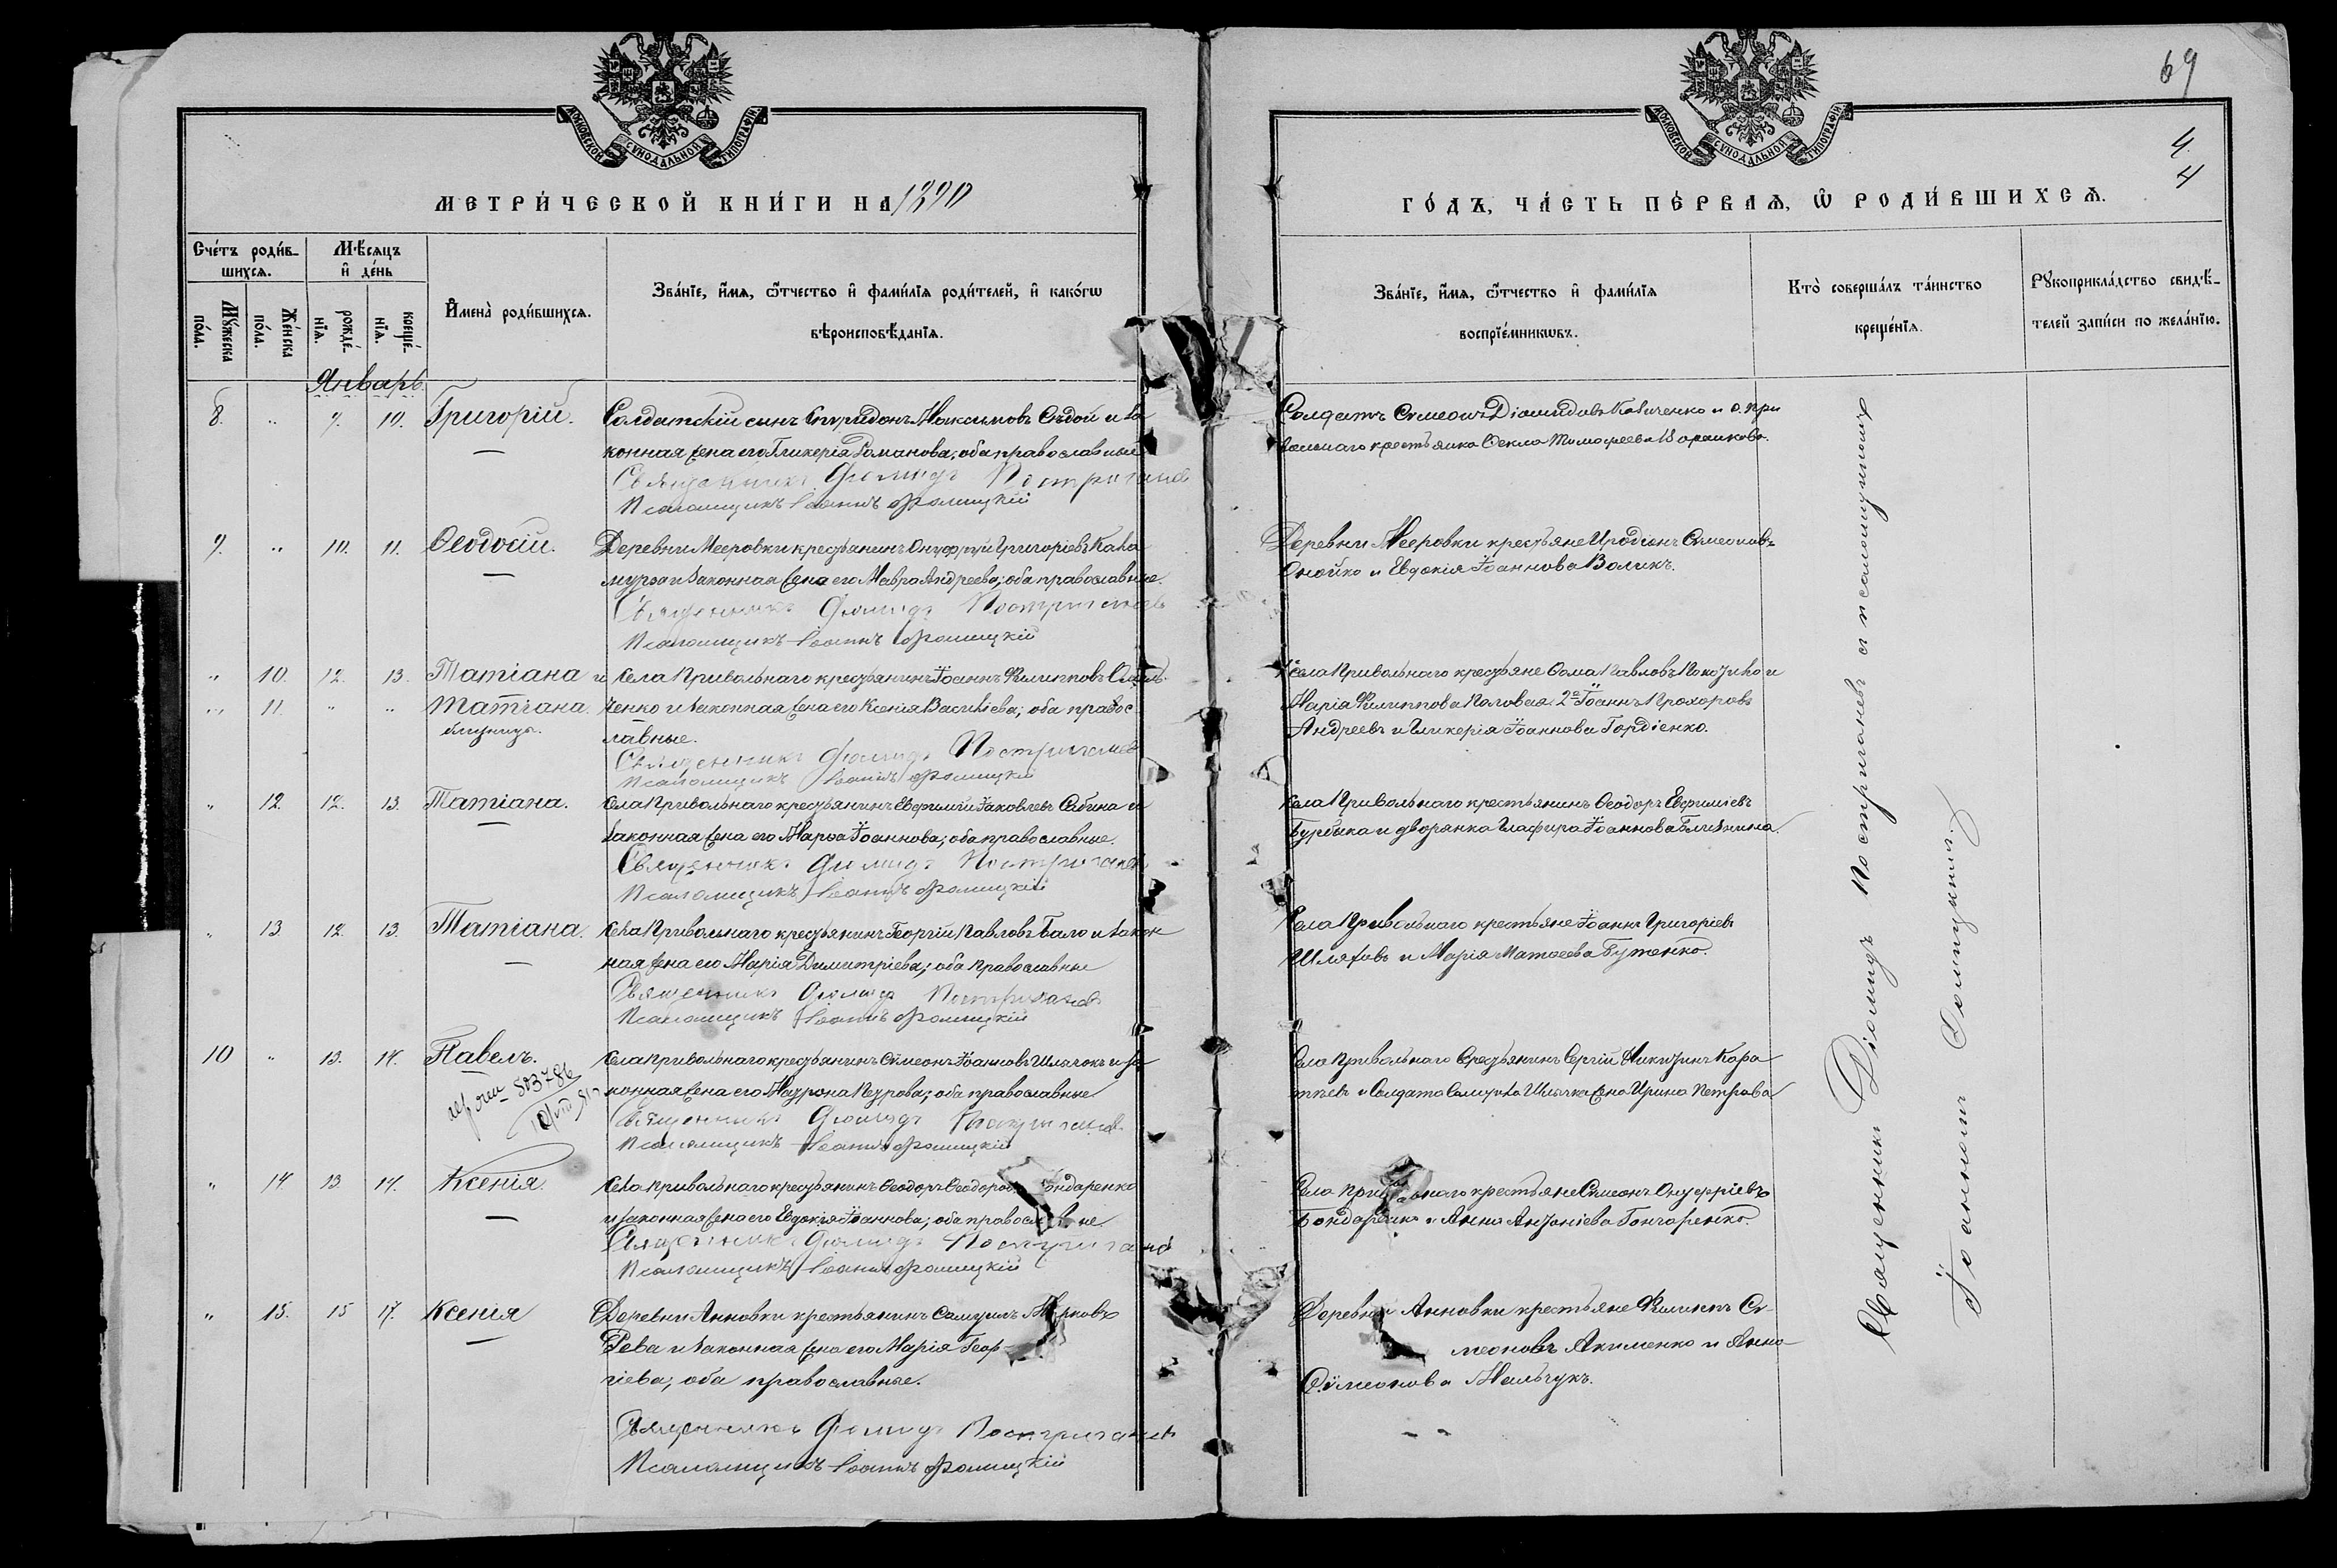 69
4.
4
МОСКОВСКОЙ СУНОДАЛЬНОЙ ТИПОГРАФІИ
МОСКОВСКОЙ СУНОДАЛЬНОЙ ТИПОГРАФІИ
МЕТРИ́ЧЕСКОЙ КНИ́ГИ НА 1890
ГО́ДЪ, ЧА́СТЬ ПЕ́РВАѦ, Ѡ РОДИ́ВШИХСѦ.
Сче́тъ роди́в-
шихсѧ.
Мѣ́сяцъ
и҆ де́нь
Мꙋ́жеска
по́ла.
Же́нска
по́ла.
рожде́-
нїѧ.
креще́-
нїѧ.
И҆мена̀ роди́вшихсѧ.
Зва́нїе, и҆́мѧ, ѻ҆́тчество и҆ фами́лїѧ роди́телей, и҆ како́гѡ
вѣроисповѣ́данїѧ.
Зва́нїе, и҆́мѧ, ѻ҆́тчество и҆ фами́лїѧ
воспрїе́мникѡвъ.
Кто̀ соверша́лъ та́инство
креще́нїѧ.
Рꙋкоприкла́дство свидѣ́-
телей за́писи по жела́нїю.
Январь.
8. " 9. 10. Григорій. Солдатскій сынъ Спиридонъ Максимовъ Сѣдой и за
конная жена его Гликерія Романова; оба православные
Священникъ Діомидъ Постригачев
Псаломщикъ Іоаннъ Фомицкій
Солдатъ Симеонъ Діомидовъ Кобиченко и с. При
вольнаго крестьянка Ѳекла Тимоѳеева
9. " 10. 11. Ѳеодосій. Деревни Мееровки крестьянинъ Онуфрій Григоріевъ Кала
мурза и законная жена его Мавра Андреева; оба православные.
Священникъ Діомидъ Постригачевъ
Псаломщикъ Іоаннъ Фомицкій
Деревни Мееровки крестьяне Иродіонъ Симеоновъ
Онойко и Евдокія Іоаннова Воликъ.
" 10. 12. 13. Татіана и Села Привольнаго крестьянинъ Іоаннъ Филипповъ
" 11. " " Татіана. ченко и законная жена его Ксенія Василіева; оба правос
близницы. лавные.
Священникъ Діомидъ Постригачев
Псаломщикъ Іоаннъ Фомицкій
Села Привольнаго крестьяне Ѳома Павловъ и
Марія Филиппова Половая. 2е Іоаннъ Прохоровъ
Андреевъ и Гликерія Іоаннова Гордіенко.
" 12. 12. 13. Татіана. Села Привольнаго крестьянинъ Евфимій Іаковлевъ Сабина и
законная жена его Марѳа Іоаннова; оба православные.
Священникъ Діомидъ Постригачев
Псаломщикъ Іоаннъ Фомицкій
Села Привольнаго крестьянинъ Ѳеодоръ Евфиміевъ
Бурбыка и дворянка Глафира Іоаннова Близнина.
" 13 12. 13. Татіана. Села Привольнаго крестьянинъ Георгій Павловъ Бало и закон
ная жена его Марія Димитріева; оба православные
Священникъ Діомидъ Постригачев
Псаломщикъ Іоаннъ Фомицкій
Села Привольнаго крестьяне Іоаннъ Григоріевъ
Шляховъ и Марія Матѳеева Бутенко.
10 " 13. 14. Павелъ. Села Привольнаго крестьянинъ Симеонъ Іоанновъ Шлячокъ и за
конная жена его Матрона Петрова; оба православные
803786
Священникъ Діомидъ Постригачев
Псаломщикъ Іоаннъ Фомицкій
Села Привольнаго Крестьянинъ Сергій Никитинъ Кара
и Солдата Самуила Шлячка жена Ирина Петрова
" 14 13 14. Ксенія. Села Привольнаго крестьянинъ Ѳеодоръ Ѳеодоров ондаренко
и законная жена его Евдокія Іоаннова; оба правосл в не
Священникъ Діомидъ Постригачев
Псаломщикъ Іоаннъ Фомицкій
Села Привольнаго крестьяне Симеонъ Онуфріевъ
Бондаренко и Анна Антоніева Гончаренко.
" 15. 15 17. Ксенія Деревни Анновки крестьянинъ Самуилъ Марковъ
Рева и законная жена его Марія Геор-
гіева; оба православные.
Священникъ Діомидъ Постригачев
Псаломщикъ Іоаннъ Фомицкій
Деревни Анновки крестьяне Филиппъ Си-
меоновъ Якименко и Анна
Симеонова Мальчукъ.
Священникъ Діомидъ Постригачевъ съ псаломщикомъ
Іоанномъ Фомицкимъ.